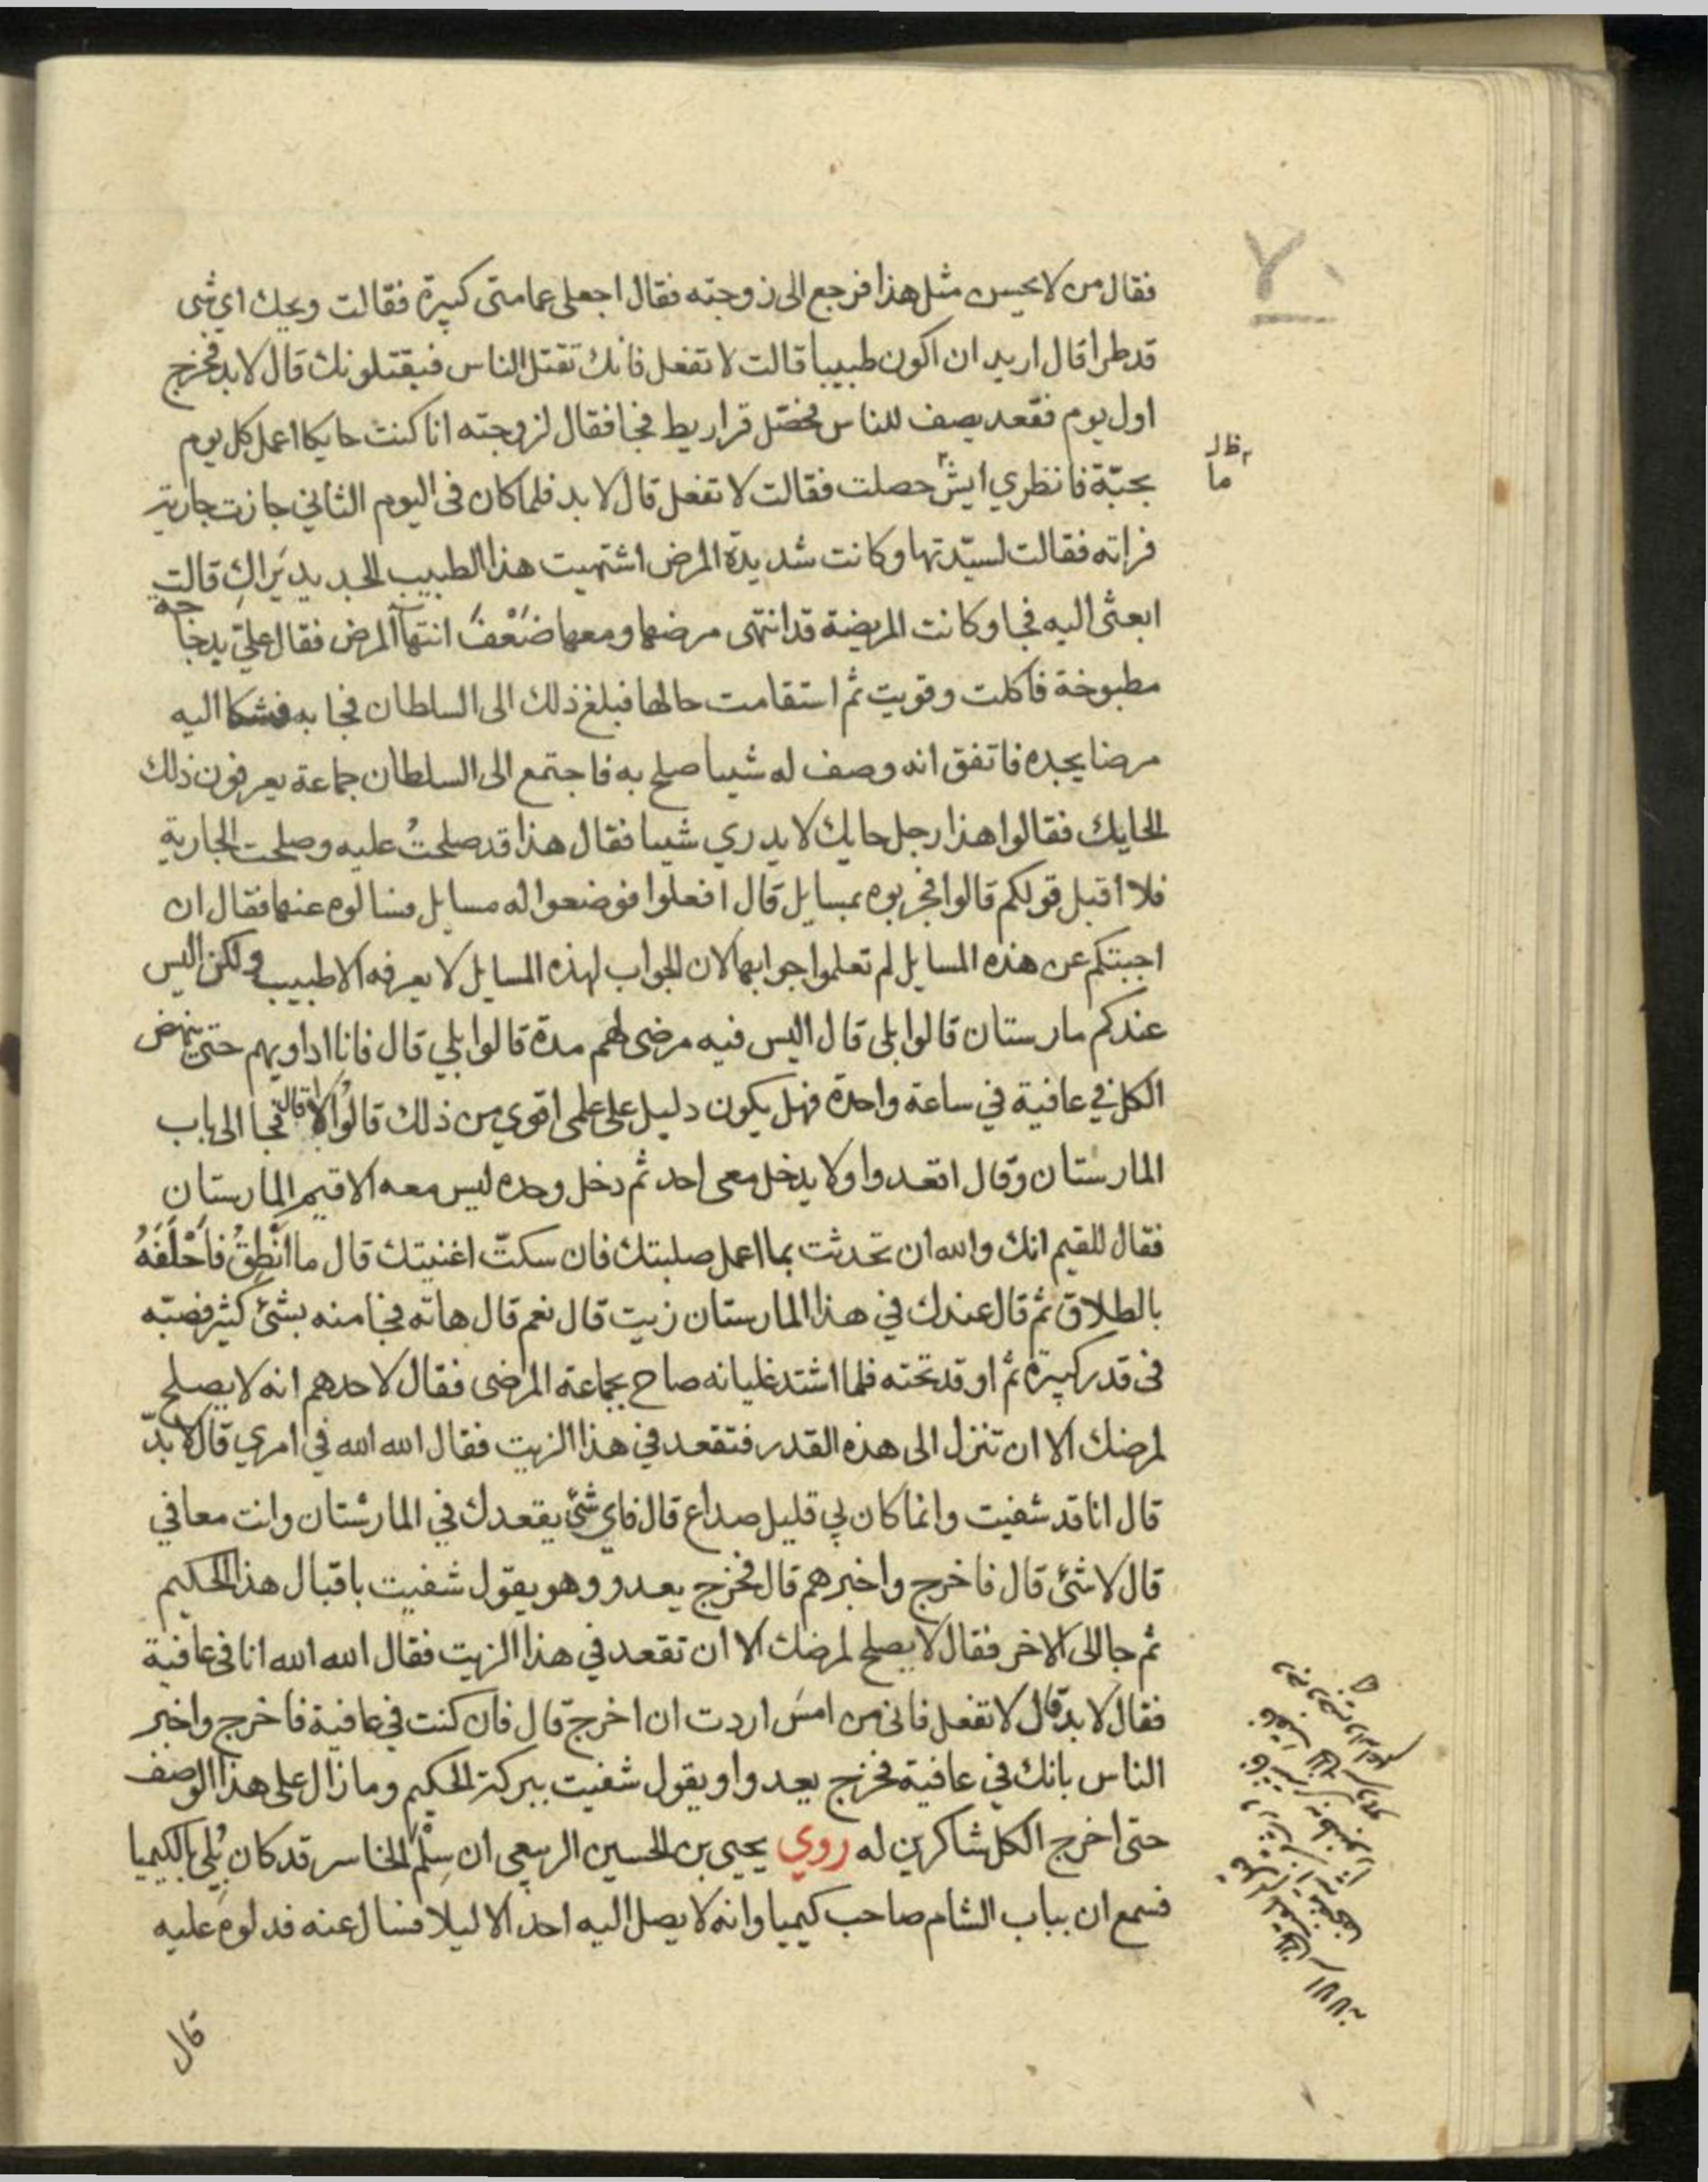 ٧٠
فقال من لا يحسن مثل هذا فرجع الى زوجته فقال اجعلى عمامتى كبيرة فقالت ويحك اي شى
قد طرا قال اريد ان اكون طبيبا قالت لا تفعل فانك تقتل الناس فيقتلونك قال لا بد فخرج
اول يوم فقعد يصف للناس فحصّل قراريط فجا فقال لزوجته انا كنت حايكا اعمل كل يوم
بحبّة فانظري ايش حصلت فقالت لا تفعل قال لا بد فلما كان فى اليوم الثاني جازت جارية
ظ
ما
فراته فقالت لسيّدتها وكانت شديدة المرض اشتهيت هذا الطبيب الجديد يَراكِ قالت
ابعثى اليه فجا وكانت المريضة قد انتهى مرضها ومعها ضَعْفُ انتهآ المرض فقال عليّ بدجاجه
مطبوخة فاكلت وقويت ثم استقامت حالها فبلغ ذلك الى السلطان فجا به فشكا اليه
مرضا يجده فاتفق انه وصف له شيا صلح به فاجتمع الى السلطان جماعة يعرفون ذلك
الحايك فقالوا هذا رجل حايك لا يدري شيا فقال هذا قد صلحتُ عليه وصلحت الجارية
فلا اقبل قولكم قالوا فجربوه بمسايل قال افعلوا فوضعوا له مسايل فسالوه عنها فقال ان
اجبتكم عن هذه المسايل لم تعلموا جوابها لان الجواب لهذه المسايل لا يعرفه الا طبيب ولكن اليس
عندكم مارستان قالوا بلى قال اليس فيه مرضى لهم مدة قالوا بلي قال فانا اداويهم حتى ينهض
الكل في عافية في ساعة واحدة فهل يكون دليل على علمى اقوي من ذلك قالوا لا قال فجا الى باب
المارستان وقال اقعدوا ولا يدخل معى احد ثم دخل وحده ليس معه الا قيم المارستان
فقال للقيم انك والله ان تحدثت بما اعمل صلبتك فان سكتّ اغنيتك قال ما اَنْطِقُ فاَحْلَفَهُ
بالطلاق ثم قال عندك في هذا المارستان زيت قال نعم قال هاته فجا منه بشئ كثير فصبّه
فى قدر كبيرة ثم اوقد تحته فلما اشتد غليانه صاح بجماعة المرضى فقال لاحدهم انه لا يصلح
لمرضك الا ان تنزل الى هذه القدر فتقعد في هذا الزيت فقال الله الله في امري قال لا بدّ
قال انا قد شفيت وانما كان بي قليل صداع قال فاي شئ يقعدك في المارستان وانت معافي
قال لا شئ قال فاخرج واخبرهم قال فخرج يعدو وهو يقول شفيت باقبال هذا الحكيم
ثم جا الى الاخر فقال لا يصلح لمرضك الا ان تقعد في هذا الزيت فقال الله الله انا فى عافية
فقال لا بدّ قال لا تفعل فانى من امسَ اردت ان اخرج قال فان كنت في عافية فاخرج واخبر
الناس بانك في عافية فخرج يعدوا ويقول شفيت ببركة الحكيم وما زال على هذا الوصف
حتى اخرج الكل شاكرين له روي يحيى بن الحسين الربعي ان سِلْم الخاسر قد كان بُلِيَ بالكيميا
فسمع ان بباب الشام صاحب كيميا وانه لا يصل اليه احد الا ليلا فسال عنه فدلوه عليه
قال